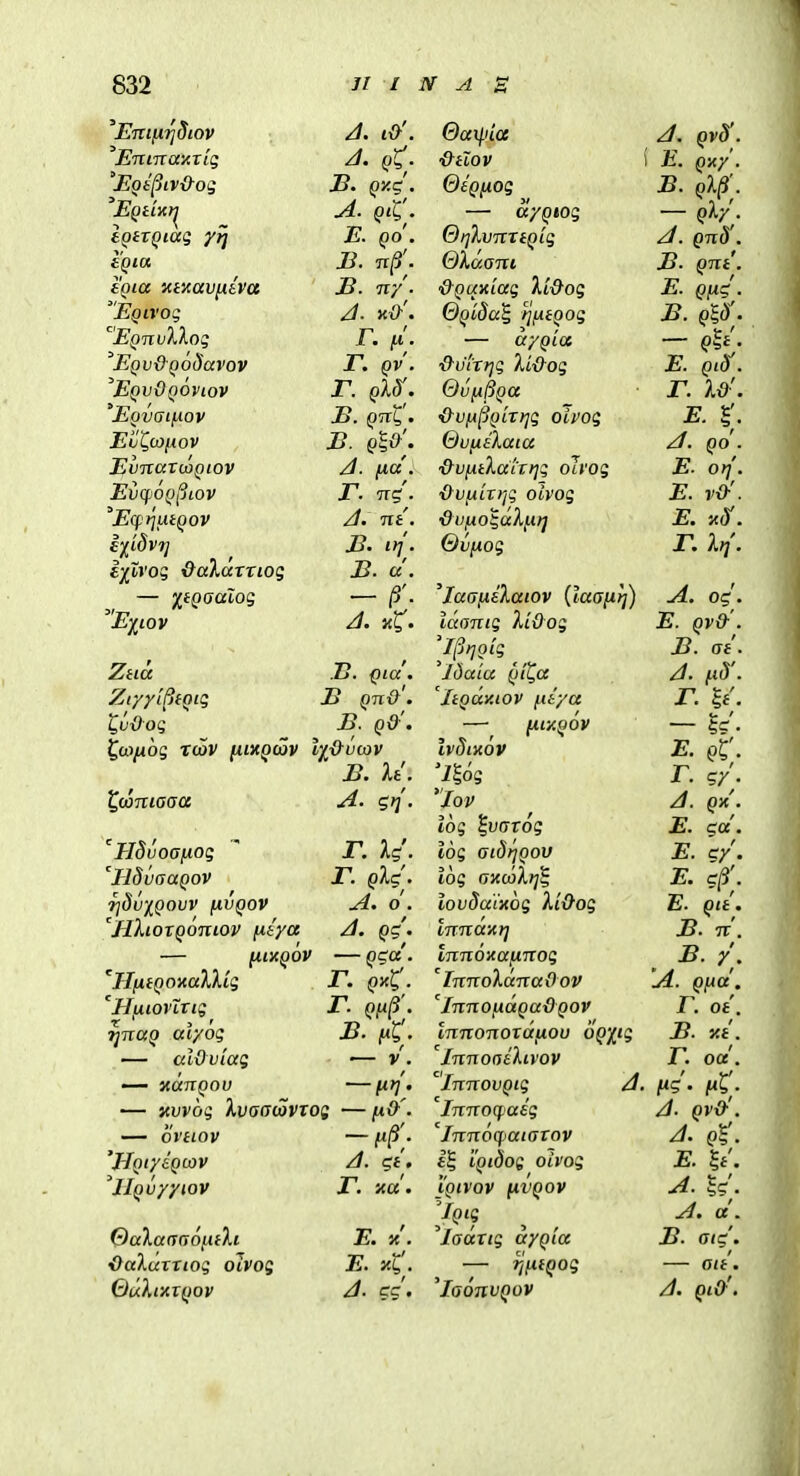 832 ΠΙΝΑΞ
Ἐπιμήδιον Δ. ιθ΄.
Ἐπιπακτίς Δ. ρζ΄.
Ἐρέβινθος Β. ρκς΄.
Ἐρείκη Α. ριζ΄.
ἐρετριὰς γῆ Ε. ρο΄.
ἔρια Β. πβ΄.
ἔρια κεκαυμένα Β. πγ΄.
Ἔρινος Δ. κθ΄.
Ἕρπυλλος Γ. μ΄.
Ἐρυθρόδανον Γ. ρν΄.
Ἐρυθρόνιον Γ. ρλδ΄.
Ἐρύσιμον Β. ρπζ΄.
Εὔζωμον Β. ρξθ΄.
Εὐπατώριον Δ. μα΄.
Εὐφόρβιον Γ. πς΄.
Ἐφήμερον Δ. πε΄.
ἔχιδνη Β. ιη΄.
ἐχῖνος θαλάττιος Β. α΄.
— χερσαῖος — β΄.
Ἔχιον Δ. κζ΄.
Ζειά Β. ρια΄.
Ζιγγίβερις Β ρπθ΄.
ζύθος Β. ρθ΄.
ζωμὸς τῶν μικρῶν ἰχθύων
Β. λε΄.
ζώπισσα Α. ςη΄.
Ἡδύοσμος Γ. λς΄.
Ἡδύσαρον Γ. ρλς΄.
ἡδύχρουν μύρον Α. ο΄.
Ἡλιοτρόπιον μέγα Δ. ρς΄.
— μικρόν — ρςα΄.
Ἡμεροκαλλίς Γ. ρκζ΄.
Ἡμιονῖτις Γ. ρμβ΄.
ἧπαρ αἰγός Β. μζ΄.
— αἰθυίας — ν΄.
— κάπρου — μη΄.
— κυνὸς λυσσῶντος — μθ΄.
— ὄνειον — μβ΄.
Ἠριγέρων Δ. ςε΄.
Ἠρύγγιον Γ. κα΄.
Θαλασσόμελι Ε. κ΄.
θαλάττιος οἶνος Ε. κζ΄.
Θάλικτρον Δ. ςς΄.
Θαψία Δ. ρνδ΄.
θεῖον Ε. ρκγ΄.
Θέρμος Β. ρλβ΄.
— ἄγριος — ρλγ΄.
Θηλυπτερίς Δ. ρπδ΄.
Θλάσπι Β. ρπε΄.
θρᾳκίας λίθος Ε. ρμς΄.
Θρίδαξ ἥμερος Β. ρξδ΄.
— ἀγρία — ρξε΄.
θυΐτης λίθος Ε. ριδ΄.
Θύμβρα Γ. λθ΄.
θυμβρίτης οἶνος Ε. ξ΄.
Θυμέλαια Δ. ρο΄.
θυμελαΐτης οἶνος Ε. οη΄.
θυμίτης οἶνος Ε. νθ΄.
θυμοξάλμη Ε. κδ΄.
Θύμος Γ. λη΄.
Ἰασμέλαιον (ἰασμή) Α. ος΄.
ἴασπις λίθος Ε. ρνθ΄.
Ἰβηρίς Β. σε΄.
Ἰδαία ῥίζα Δ. μδ΄.
Ἱεράκιον μέγα Γ. ξε΄.
— μικρόν — ξς΄.
ἰνδικόν Ε. ρζ΄.
Ἰξός Γ. ςγ΄.
Ἴον Δ. ρκ΄.
ἰὸς ξυστός Ε. ςα΄.
ἰὸς σιδήρου Ε. ςγ΄.
ἰὸς σκώληξ Ε. ςβ΄.
ἰουδαϊκὸς λίθος Ε. ριε΄.
ἱππάκη Β. π΄.
ἱππόκαμπος Β. γ΄.
Ἱππολάπαθον Α. ρμα΄.
Ἱππομάραθρον Γ. οε΄.
ἱπποποτάμου ὄρχις Β. κε΄.
Ἱπποσέλινον Γ. οα΄.
Ἵππουρις Δ. μς΄. μζ΄.
Ἱπποφαές Δ. ρνθ΄.
Ἱππόφαιστον Δ. ρξ΄.
ἐξ ἴριδος οἶνος Ε. ξε΄.
ἴρινον μύρον Α. ξς΄.
Ἶρις Α. α΄.
Ἰσάτις ἀγρία Β. σις΄.
— ἥμερος — σιε΄.
Ἰσόπυρον Δ. ριθ΄.